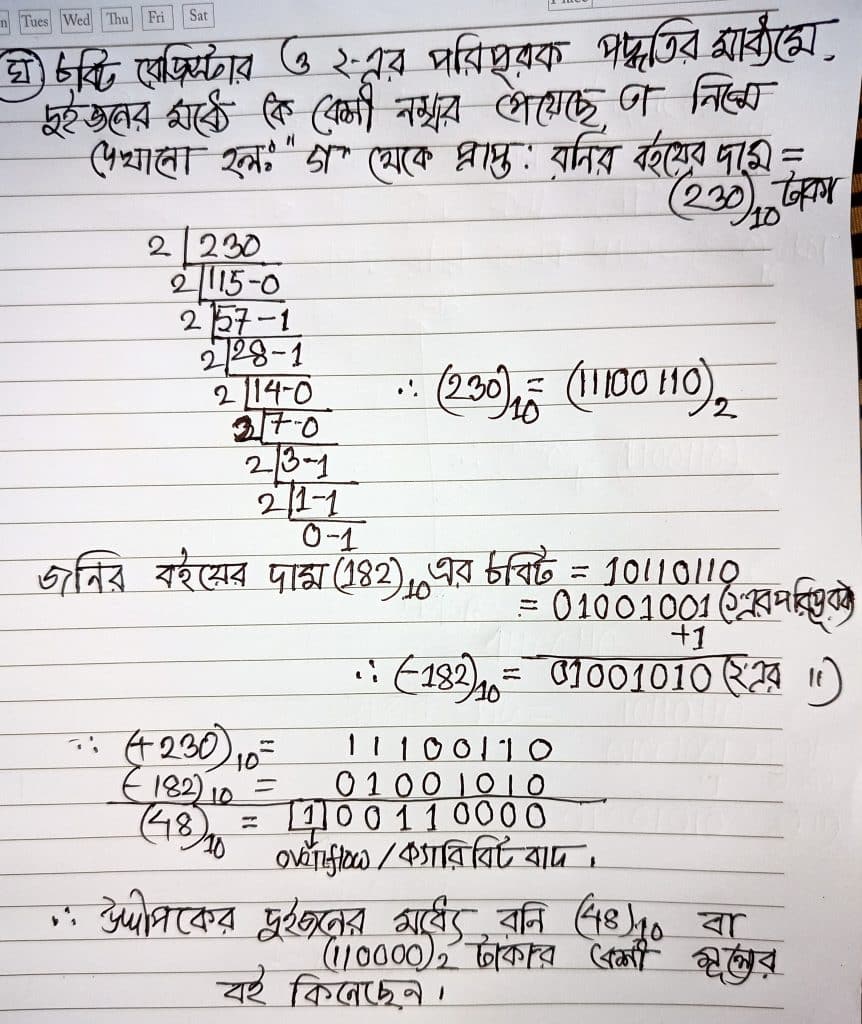 Tues Wed Thu Fri Sat
ঘ ৮ বিট রেজিস্টার ও ২-এর পরিপূরক পদ্ধতির মাধ্যমে
দুইজনের মধ্যে কে বেশী নম্বর পেয়েছে তা নিম্নে
দেখানো হল: "গ" থেকে প্রাপ্ত: রনির বইয়ের দাম =
(230)10 টাকা
2 230
2 115-0
2 57-1
2 28-1
2 14-0 ∴ (230)10 = (11100110)2
2 7-0
2 3-1
2 1-1
0-1
জনির বইয়ের দাম (182)10 এর ৮ বিট = 10110110
= 01001001 (১ এর পরিপূরক)
+1
∴ (-182)10 = 01001010 (২ এর 11)
∵ (+230)10 = 11100110
(-182)10 = 01001010
(48)10 = [1]00110000
overflow / ক্যারি বিট বাদ।
∴ উদ্দীপকের দুইজনের মধ্যে রনি (48)10 বা
(110000)2 টাকার বেশী মূল্যের
বই কিনেছেন।